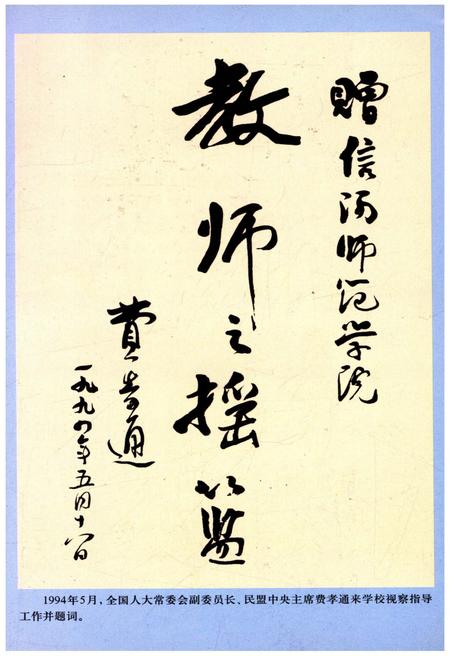 赠信阳师范学院
教师之摇篮
费孝通
一九九四年五月十八日
1994年5月，全国人大常委会副委员长、民盟中央主席费孝通来学校视察指导
工作并题词。